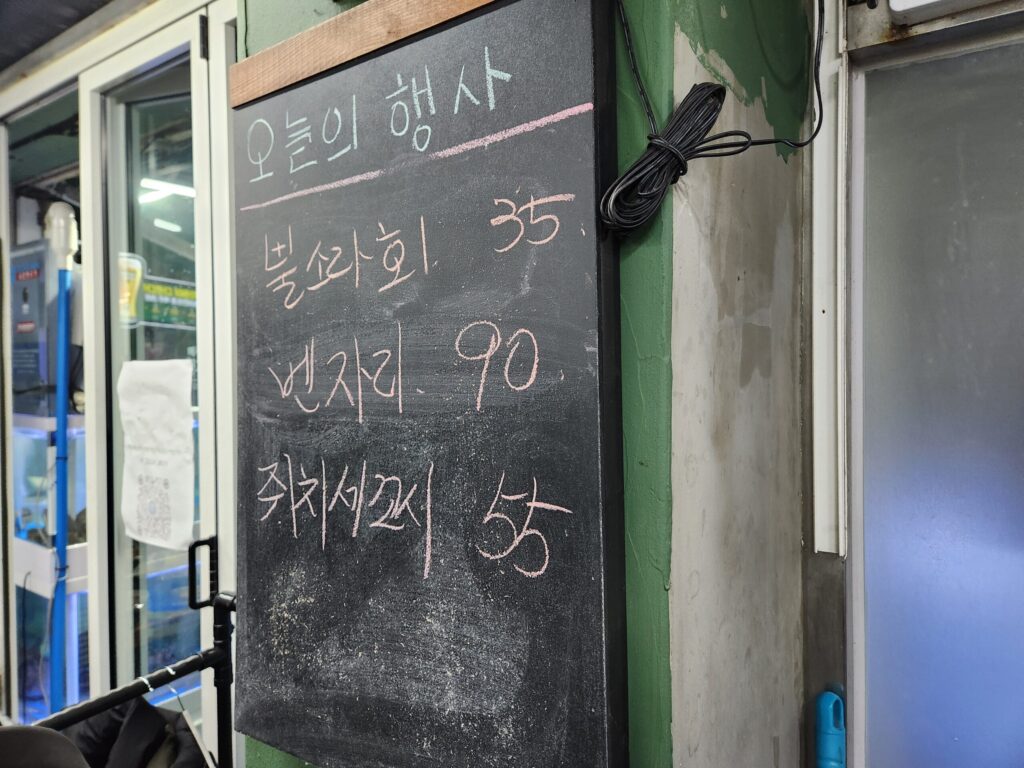 오늘의 행사
뿔소라회. 35.
벤자리. 90.
쥐치세꼬시 55